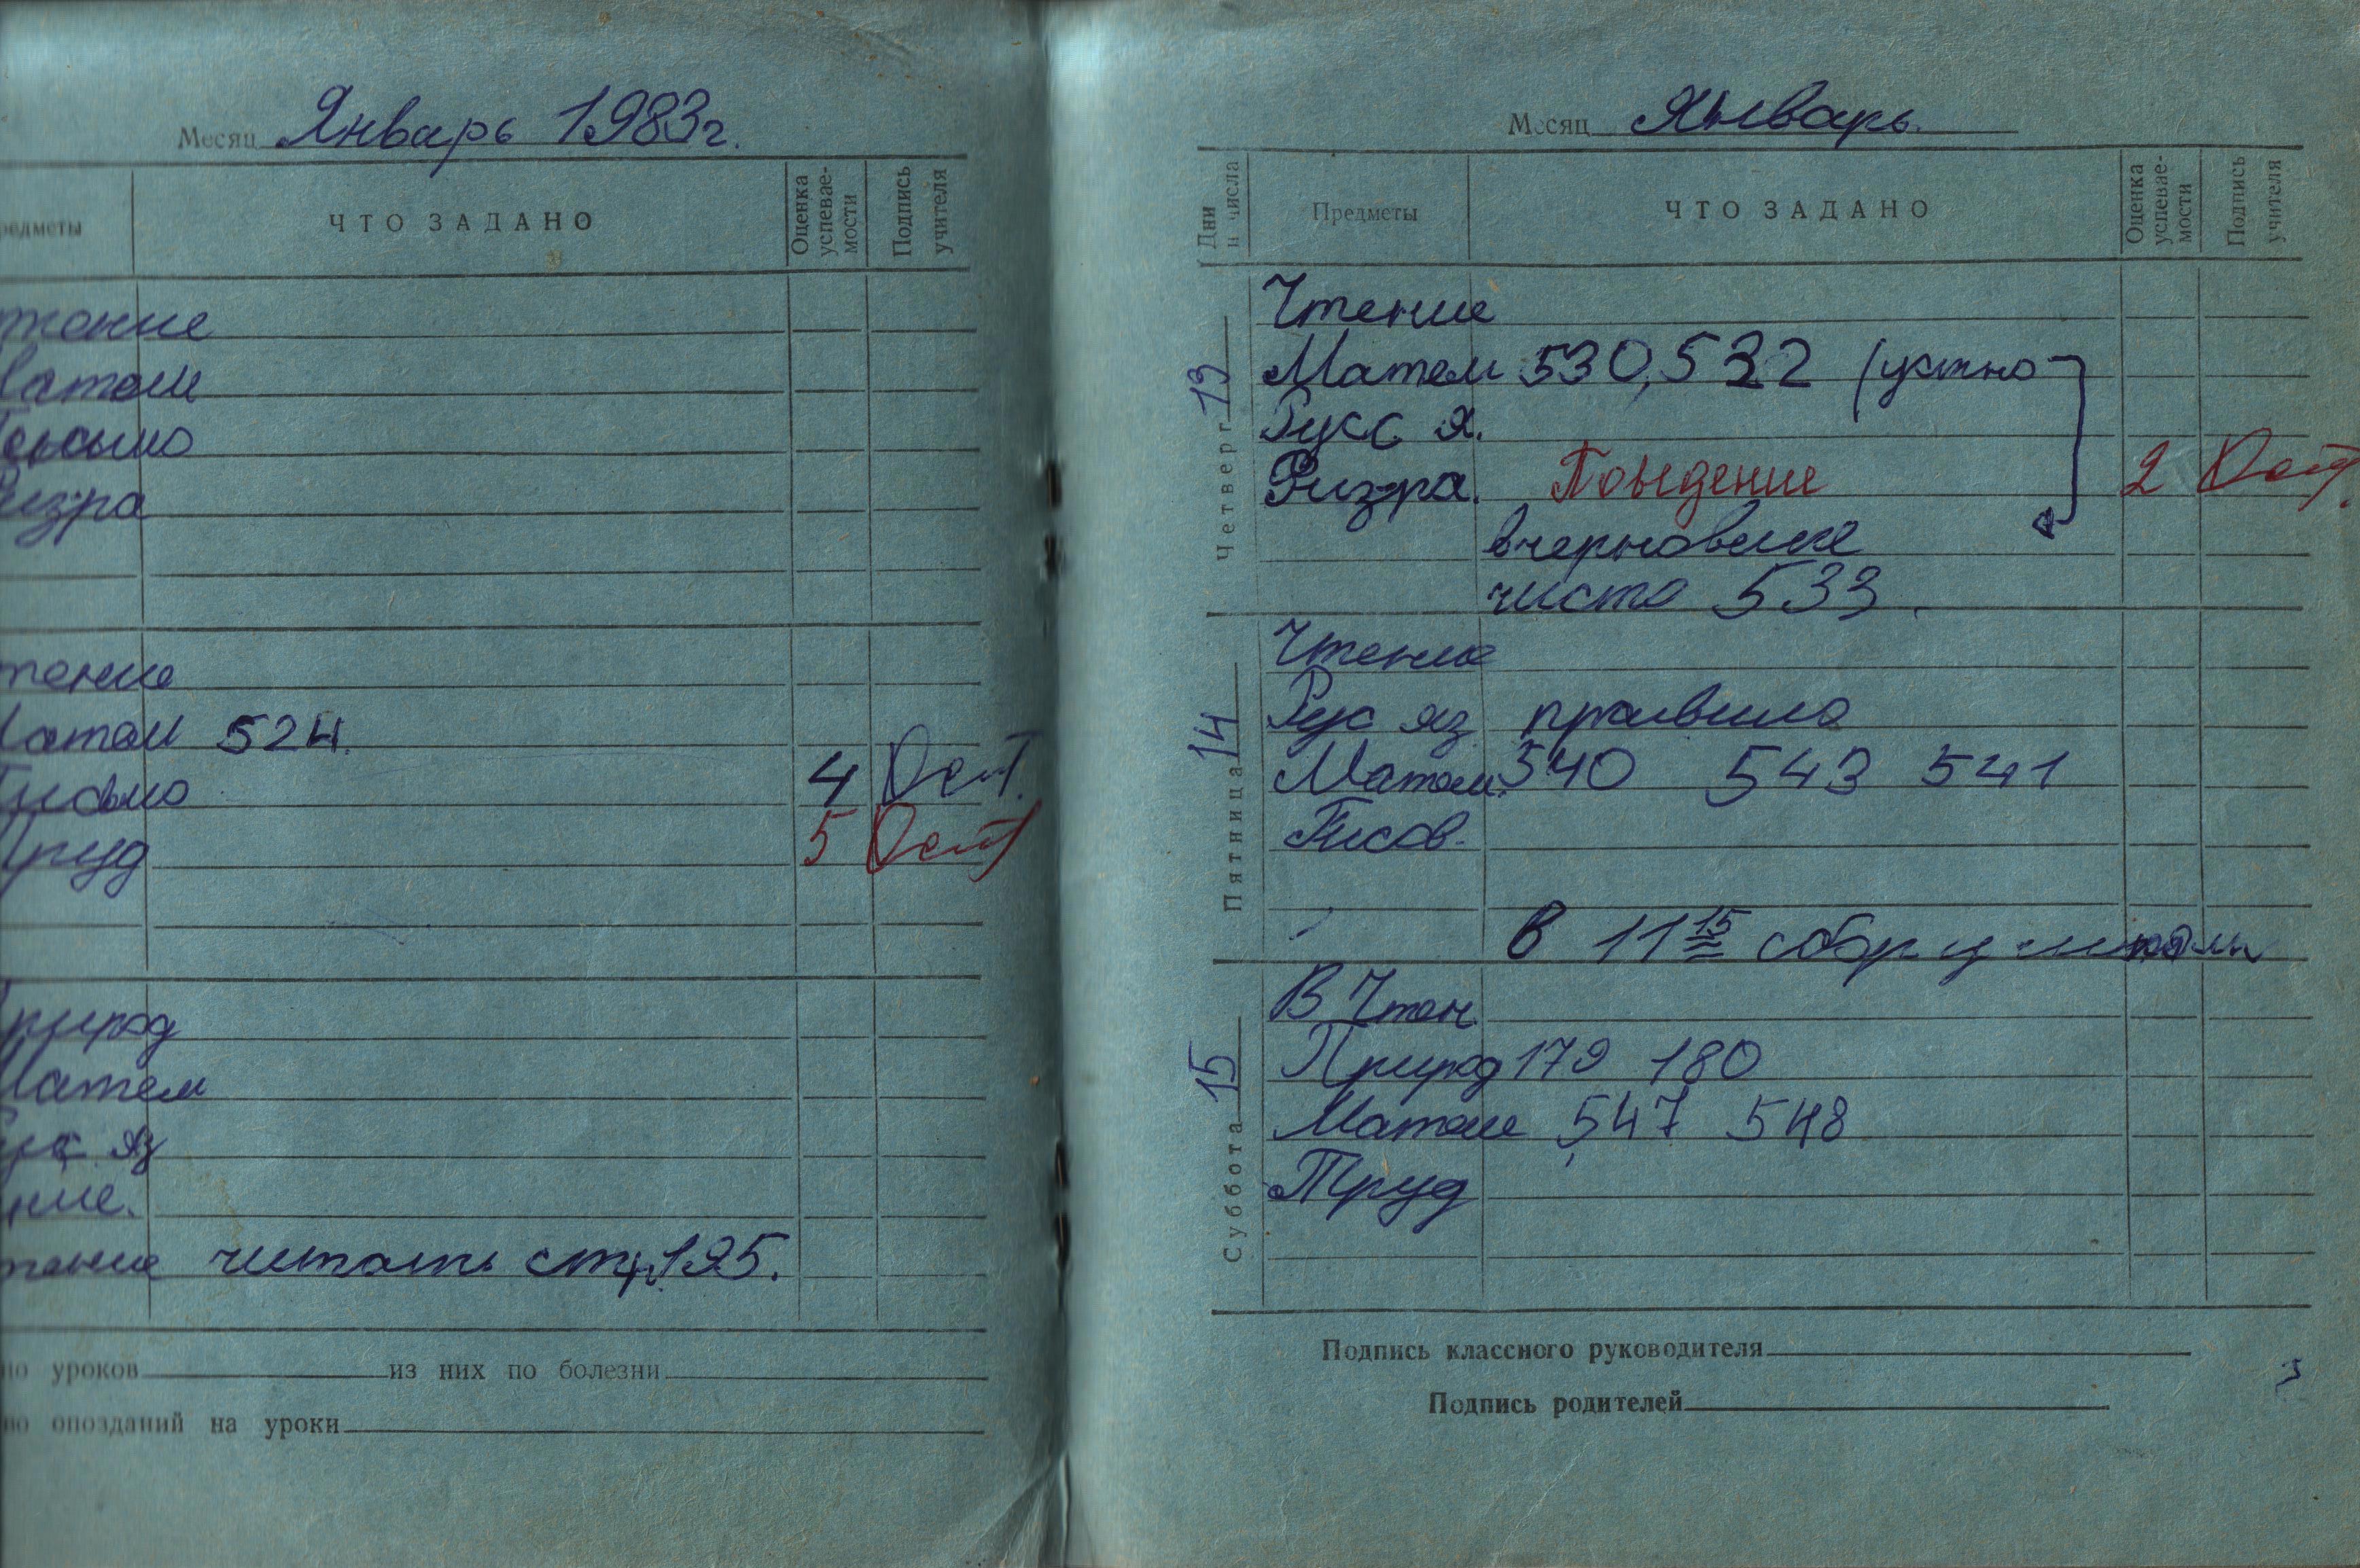 Месяц Январь 1983г.
редметы ЧТО ЗАДАНО Оценка успевае-мости Подпись учителя
тение
Матем
Письмо
Физ-ра
тение
Матем 524.
Письмо 4 Ост.
Труд 5 Ост
Природ
Матем
Рус яз
ение.
тение читать стр 195.
но уроков из них по болезни
во опозданий на уроки
Месяц Январь.
Дни и числа Предметы ЧТО ЗАДАНО Оценка успевае-мости Подпись учителя
Четверг 13
Чтение
Матем 530, 532 (устно
Русс я.
Физ-ра. Поведение 2 Ост.
вчерновике
чисто 533.
Пятница 14
Чтение
Рус яз правило
Матем. 540 543 541
Рисов.
В 11 15 сбор у школы
Суббота 15
В Чтен
Природ 179 180
Матем 547 548
Труд
Подпись классного руководителя
Подпись родителей